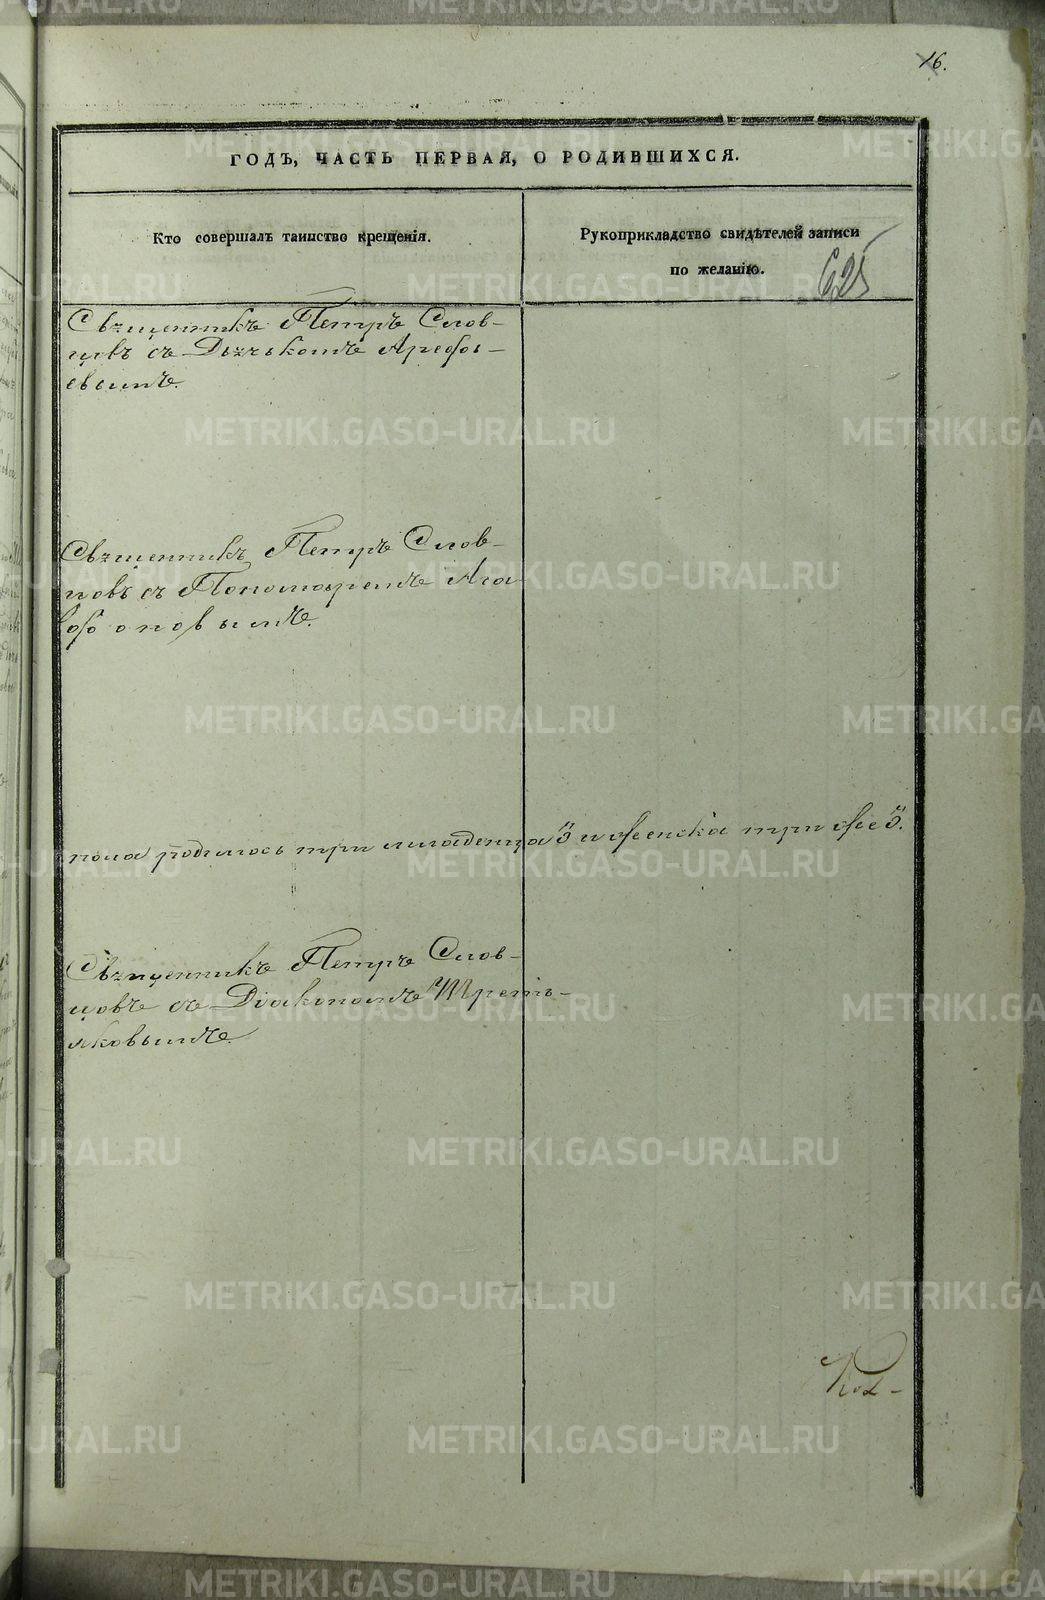 16.
ГОДЪ, ЧАСТЬ ПЕРВАЯ, О РОДИВШИХСЯ.
Кто совершалъ таинство крещенія.
Рукоприкладство свидѣтелей записи
по желанію.
625
Священникъ Петръ Слов-
цовъ съ Дьячькомъ Арефь-
евымъ.
Священникъ Петръ Слов-
цовъ съ Пономаремъ Ага
фоновымъ.
пола родилось три младенца "3" и женска три же "3".
Священникъ Петръ Слов-
цовъ съ Діакономъ Треть-
яковымъ.
METRIKI.GASO-URAL.RU